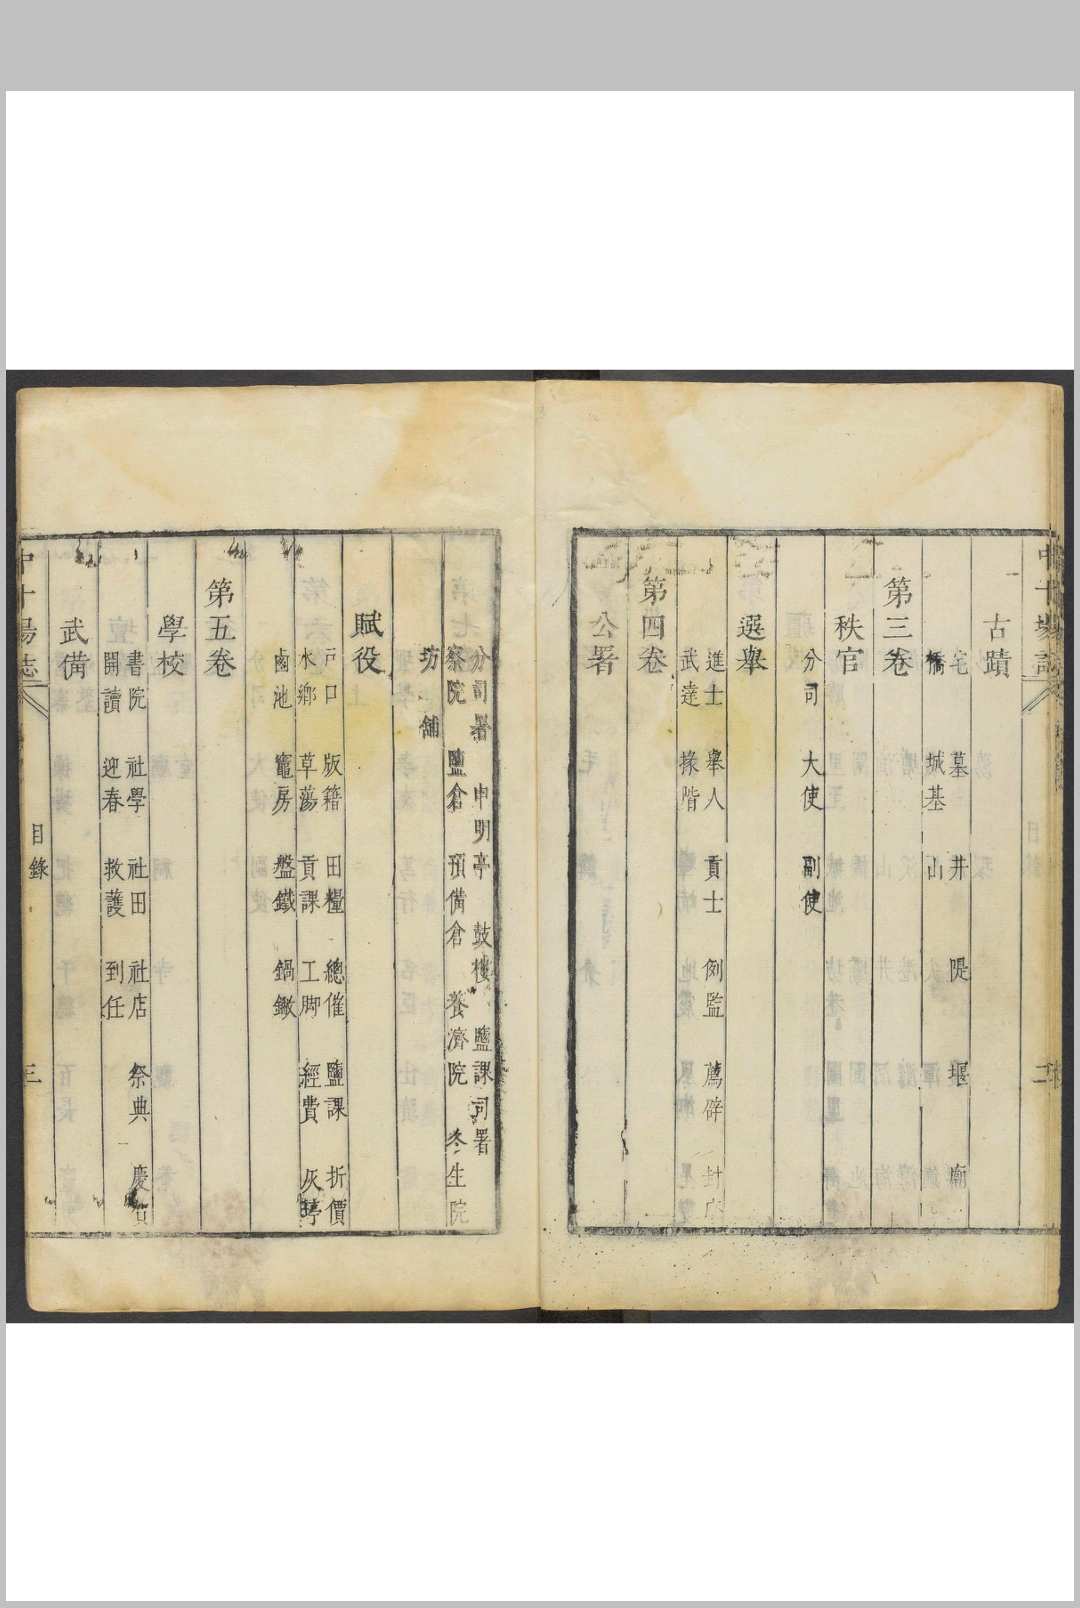 中十場志
古蹟
宅 墓 井 隄 堰 廟
橋 城基 山
第三卷
秩官
分司 大使 副使
選舉
進士 舉人 貢士 例監 薦辟 封
武達 掾階
第四卷
公署
分司署 申明亭 鼓樓 鹽課司署
察院 鹽倉 預備倉 養濟院 冬生院
坊 舖
賦役
戶口 版籍 田糧 總催 鹽課 折價
水鄉 草蕩 貢課 工腳 經費 灰亭
鹵池 竈房 盤鐵 鍋鐅
第五卷
學校
書院 社學 社田 社店 祭典 慶賀
開讀 迎春 救護 到任
武備
中十場志
目錄
三